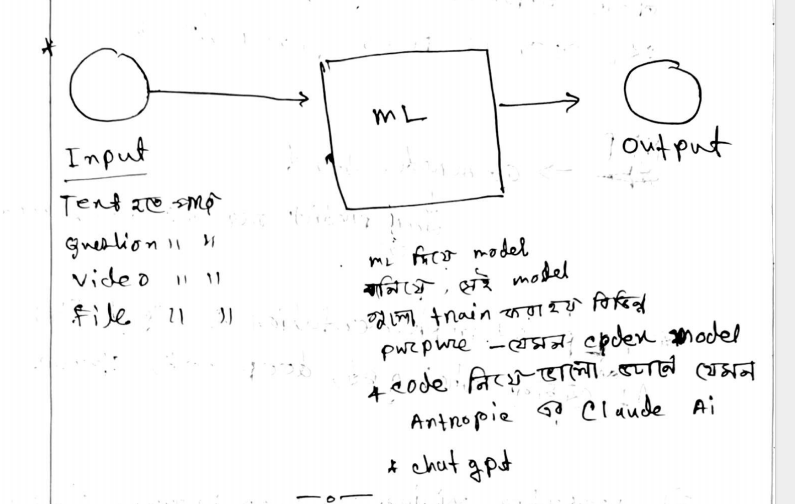 *
mL
Input
Output
Text হতে পারে
Question " "
Video " "
File " "
ML দিয়ে model
বানিয়ে, সেই model
গুলো train করা হয় বিভিন্ন
purpure - যেমন model
* code নিয়ে ভালো জানে যেমন
Antropic এর Claude Ai
* chat gpt